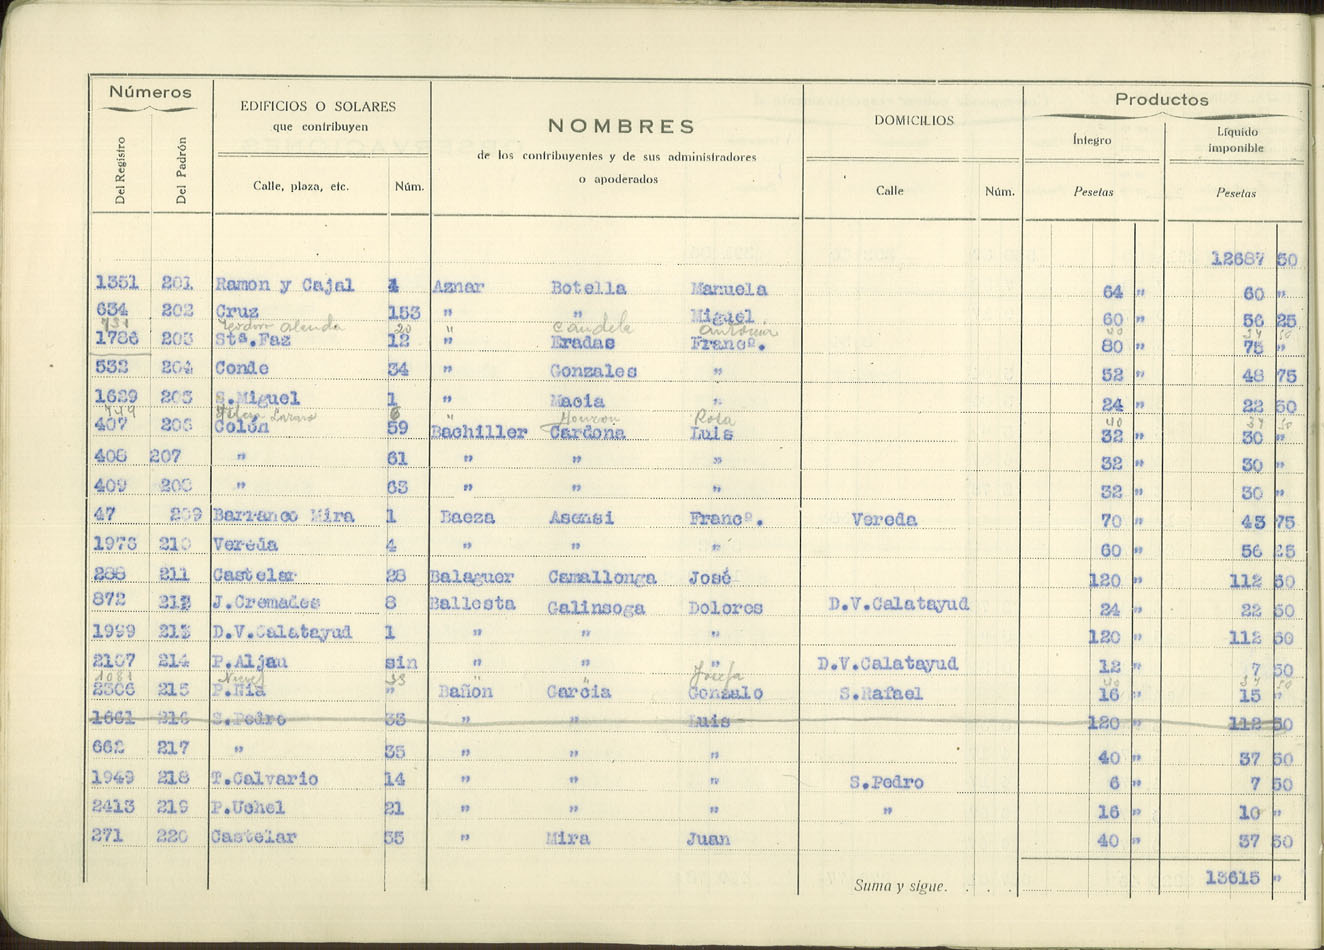 Números
EDIFICIOS O SOLARES
que contribuyen
NOMBRES
de los contribuyentes y de sus administradores
o apoderados
DOMICILIOS
Productos
Íntegro
Líquido
imponible
Del Registro
Del Padrón
Calle, plaza, etc.
Núm.
Calle
Núm.
Pesetas
Pesetas
12687 50
1351 201 Ramon y Cajal 4 Aznar Botella Manuela 64 " 60 "
634 202 Cruz 153 " " Miguel 60 " 56 25
731 Teodoro Alenda 20 " Candela Antonia 40 37 50
1786 203 Stª.Faz 12 " Eradas Francº. 80 " 75 "
532 204 Conde 34 " Gonzales " 52 " 48 75
1629 205 S.Miguel 1 " Macia " 24 " 22 50
749 6 " Rosa 40 37 50
407 206 Colón 59 Bachiller Cardona Luis 32 " 30 "
408 207 " 61 " " " 32 " 30 "
409 208 " 63 " " " 32 " 30 "
47 209 Barranco Mira 1 Baeza Asensi Francº. Vereda 70 " 43 75
1976 210 Vereda 4 " " " 60 " 56 25
288 211 Castelar 28 Balaguer Camallonga José 120 112 50
872 212 J.Cremades 8 Ballesta Galinsoga Dolores D.V.Calatayud 24 " 22 50
1999 213 D.V.Calatayud 1 " " " 120 " 112 50
2167 214 P.Aljau sin " " " D.V.Calatayud 12 " 7 50
1081 Nieves 33 " " Josefa 40 37 50
2306 215 P.Nia " Bañon Garcia Gonzalo S.Rafael 16 " 15 "
1661 216 S.Pedro 33 " " Luis 120 " 112 50
662 217 " 35 " " " 40 " 37 50
1949 218 T.Calvario 14 " " " S.Pedro 6 " 7 50
2413 219 P.Uchel 21 " " " " 16 " 10 "
271 220 Castelar 35 " Mira Juan 40 " 37 50
Suma y sigue. . . . 13615 "